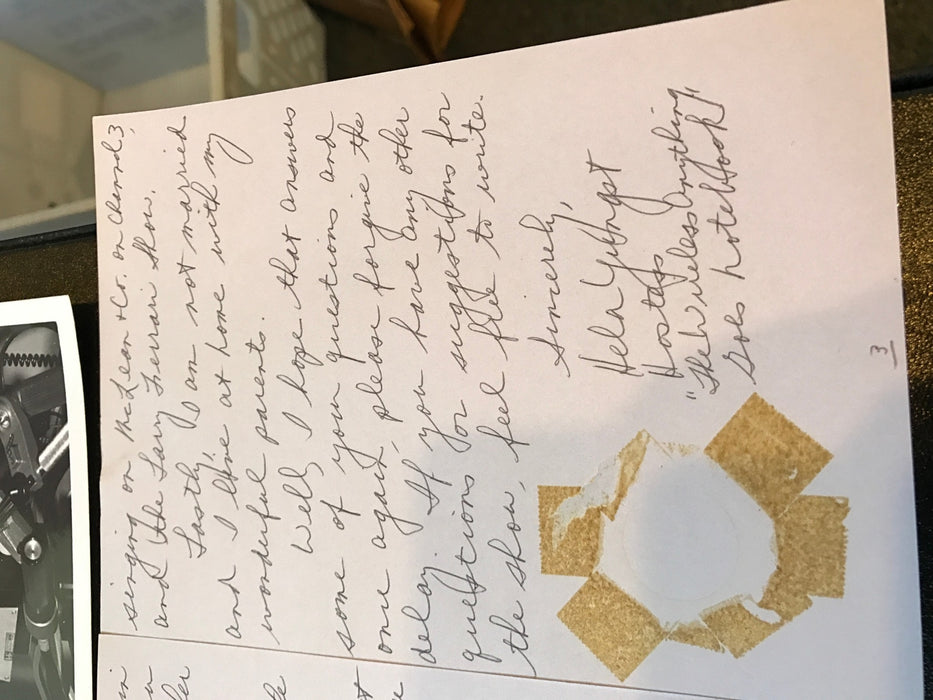 singing on McLean & Co. on Channel 3,
and the Larry Ferrari Show.
Lastly, I am not married
and I live at home with my
wonderful parents.
Well, I hope that answers
some of your questions and
once again, please forgive the
delay. If you have any other
questions or suggestions for
the show, feel free to write.
Sincerely,
Hostess
"The Wireless Anything
Goes Notebook"
3